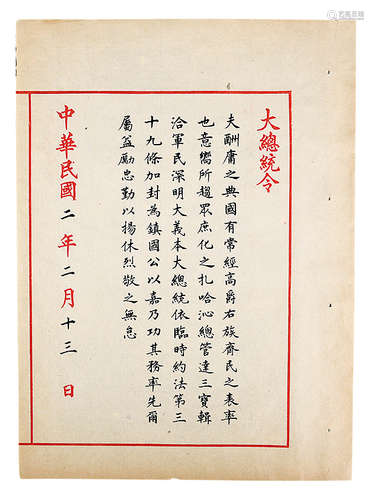 大總統令
夫酬庸之典國有常經高爵右族齊民之表率
也意嚮所趨眾庶化之扎哈沁總管達三寶輯
洽軍民深明大義本大總統依臨時約法第三
十九條加封為鎮國公以嘉乃功其務率先爾
屬益勵忠勤以揚休烈敬之無怠
中華民國二年二月十三日